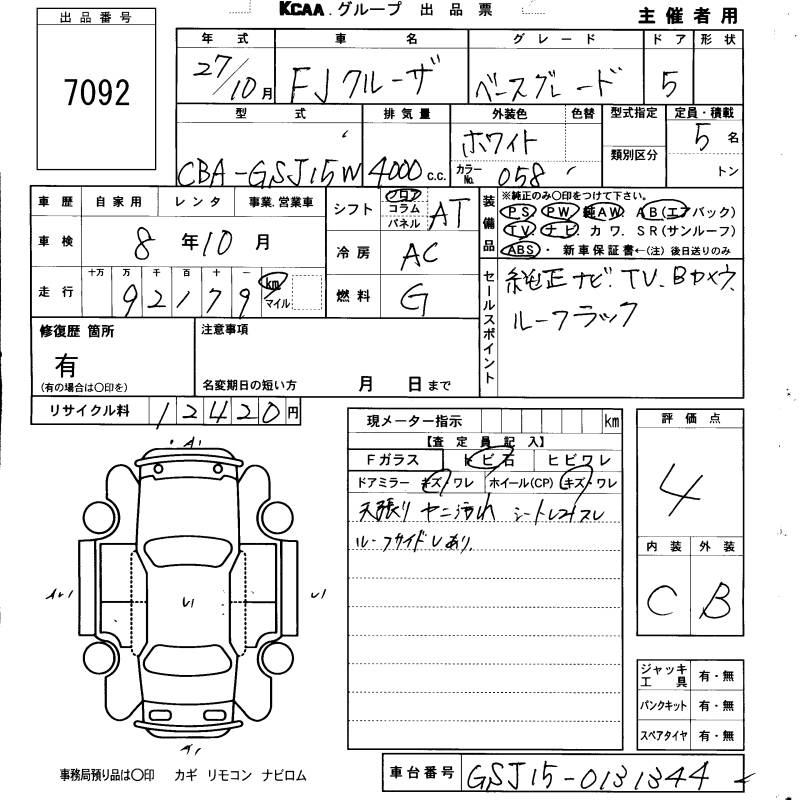 KCAA.グループ 出品票
主催者用
出品番号
7092
年式 車名 グレード ドア 形状
27/10月 FJクルーザ ベースグレード 5
型式 排気量 外装色 色替 型式指定 定員・積載
CBA-GSJ15W 4000c.c. ホワイト カラーNo. 058 類別区分 5名 トン
車歴 自家用 レンタ 事業.営業車
車検 8年10月
走行 十万 万 千 百 十 一
92179 km マイル
シフト フロア コラム パネル AT
冷房 AC
燃料 G
装備品 ※純正のみ○印をつけて下さい。
PS PW 純AW. AB(エアバック)
TV ナビ カワ. SR(サンルーフ)
ABS・ 新車保証書←(注)後日送りのみ
セールスポイント
純正ナビ. TV. Bカメラ.
ルーフラック
修復歴 箇所
有
(有の場合は○印を)
注意事項
名変期日の短い方 月 日まで
リサイクル料 12420円
現メーター指示 km
【査定員記入】
Fガラス トビ石 ヒビワレ
ドアミラー キズ・ワレ ホイール(CP) キズ・ワレ
天張り ヤニ汚れ シートレコイスレ
ルーフサイドUあり.
評価点
4
内装 外装
C B
A1
U1
U1
A1
ジャッキ工具 有・無
パンクキット 有・無
スペアタイヤ 有・無
事務局預り品は○印 カギ リモコン ナビロム
車台番号 GSJ15-0131344